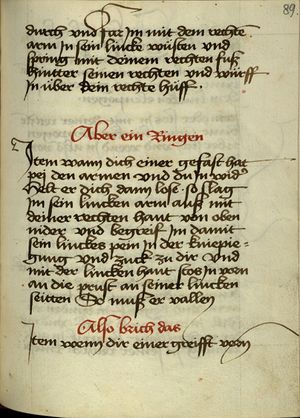 89.
durch vnd far im mit dem rechte
arm in sein lincke wüsten vnd
spring mit deinem rechten fuß
hintter seinen rechten vnd würff
in über dein rechte hüff.
Aber ein Ringen
Item wann dich einer gefast hat
pej den armen vnd du in wider
Helt er dich dann lose so slag
im sein lincken arm auß mit
deiner rechten hant von oben
nider vnd begreif im damit
sein linckes pein in der kniepie-
gung vnd zuck zu dir vnd
mit der lincken hant stos in vorn
an die prust an seiner lincken
seitten So muß er vallen
Also brich das
Item wenn dir einer greifft vorn